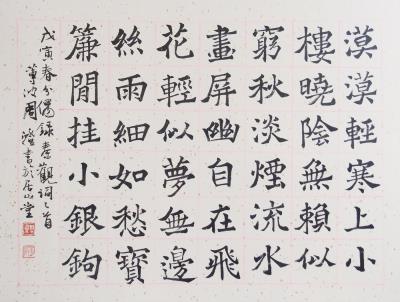 漠漠輕寒上小
樓曉陰無賴似
窮秋淡煙流水
畫屏幽自在飛
花輕似夢無邊
絲雨細如愁寶
簾閒挂小銀鉤
戊寅春分偶錄秦觀詞乙首
蓴波周澄書於居山堂